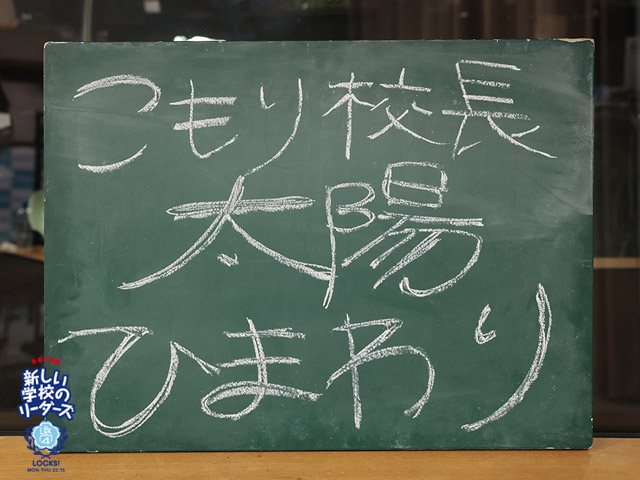 こもり校長
太陽
ひまわり
新しい
学校の
リーダーズ
LOCKS!
MON-THU 22:15